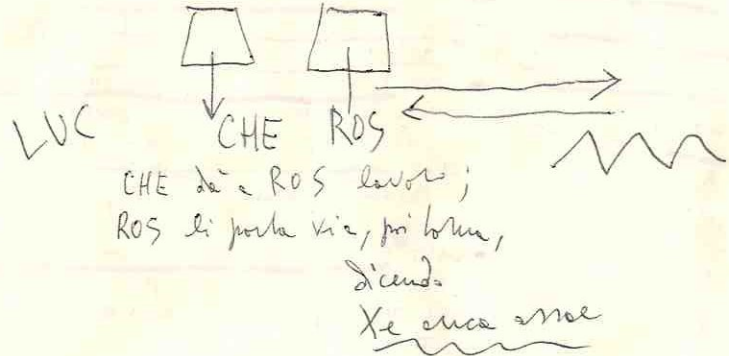 LUC CHE ROS
CHE dà a ROS lavori;
ROS li porta via, poi torna,
dicendo
Xe anca assae